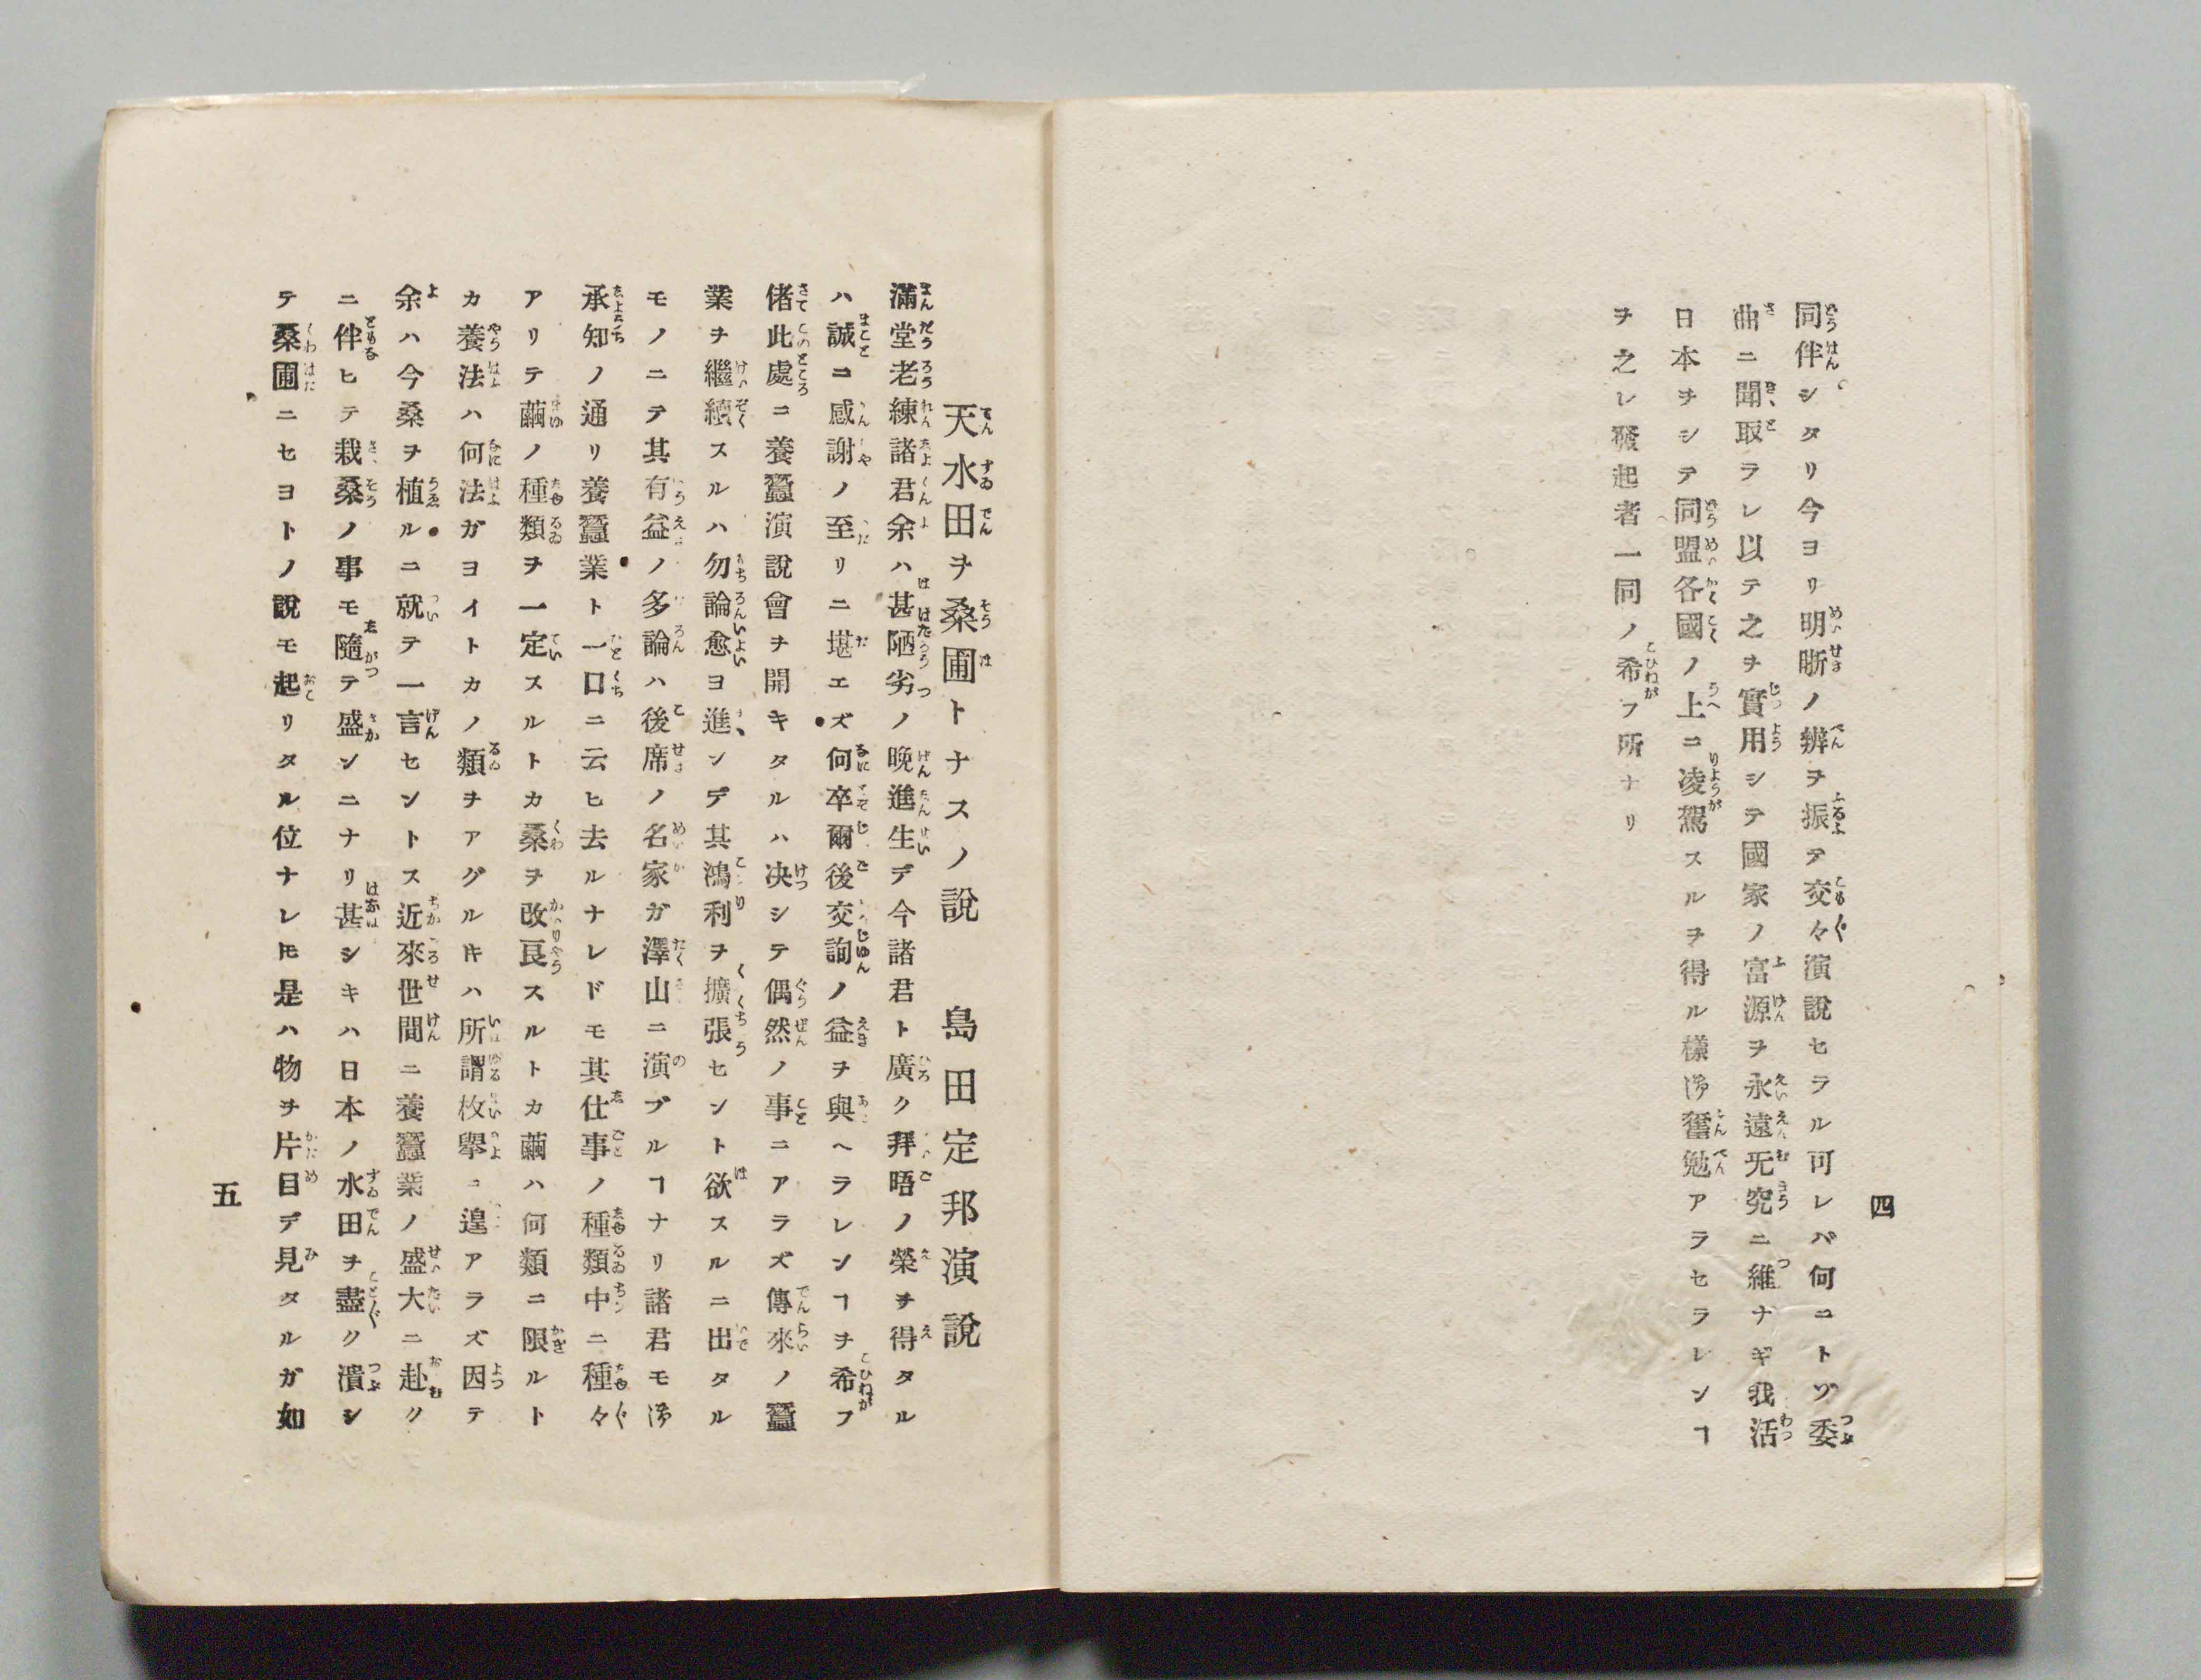 四
同伴シタリ今ヨリ明晣ノ辨ヲ振テ交々演說セラル可レバ何ニトゾ委
曲ニ聞取ラレ以テ之ヲ實用シテ國家ノ富源ヲ永遠旡究ニ維ナギ我活
日本ヲシテ同盟各國ノ上ニ凌駕スルヲ得ル樣御奮勉アラセラレンヿ
ヲ之レ發起者一同ノ希フ所ナリ
天水田ヲ桑圃トナスノ說 島田定邦演說
滿堂老練諸君余ハ甚陋劣ノ晚進生デ今諸君ト廣ク拜晤ノ榮ヲ得タル
ハ誠ニ感謝ノ至リニ堪エズ何卒爾後交詢ノ益ヲ與ヘラレンヿヲ希フ
偖此處ニ養蠶演說會ヲ開キタルハ决シテ偶然ノ事ニアラズ傳來ノ蠶
業ヲ繼續スルハ勿論愈ヨ進ンデ其鴻利ヲ擴張セント欲スルニ出タル
モノニテ其有益ノ多論ハ後席ノ名家ガ澤山ニ演ブルヿナリ諸君モ御
承知ノ通リ養蠶業ト一口ニ云ヒ去ルナレドモ其仕事ノ種類中ニ種々
アリテ繭ノ種類ヲ一定スルトカ桑ヲ改良スルトカ繭ハ何類ニ限ルト
カ養法ハ何法ガヨイトカノ類ヲアグルキハ所謂枚擧ニ遑アラズ因テ
余ハ今桑ヲ植ルニ就テ一言セントス近來世間ニ養蠶業ノ盛大ニ赴ク
ニ伴ヒテ栽桑ノ事モ隨テ盛ンニナリ甚シキハ日本ノ水田ヲ盡ク潰シ
テ桑圃ニセヨトノ說モ起リタル位ナレ𪜈是ハ物ヲ片目デ見タルガ如
五